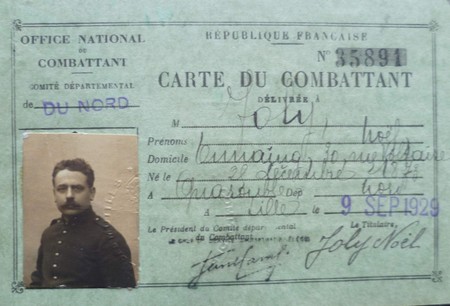 OFFICE NATIONAL
du
COMBATTANT
COMITÉ DÉPARTEMENTAL
de DU NORD
RÉPUBLIQUE FRANÇAISE
N° 35891
CARTE DU COMBATTANT
DÉLIVRÉE À
M Joly
Prenoms Noël
Domicile 30 rue
Né le Décembre
A Dép Nord
A Lille le 9 SEP 1929
Le Président du Comité départemental
du Combattant
Le Titulaire,
Joly Noël